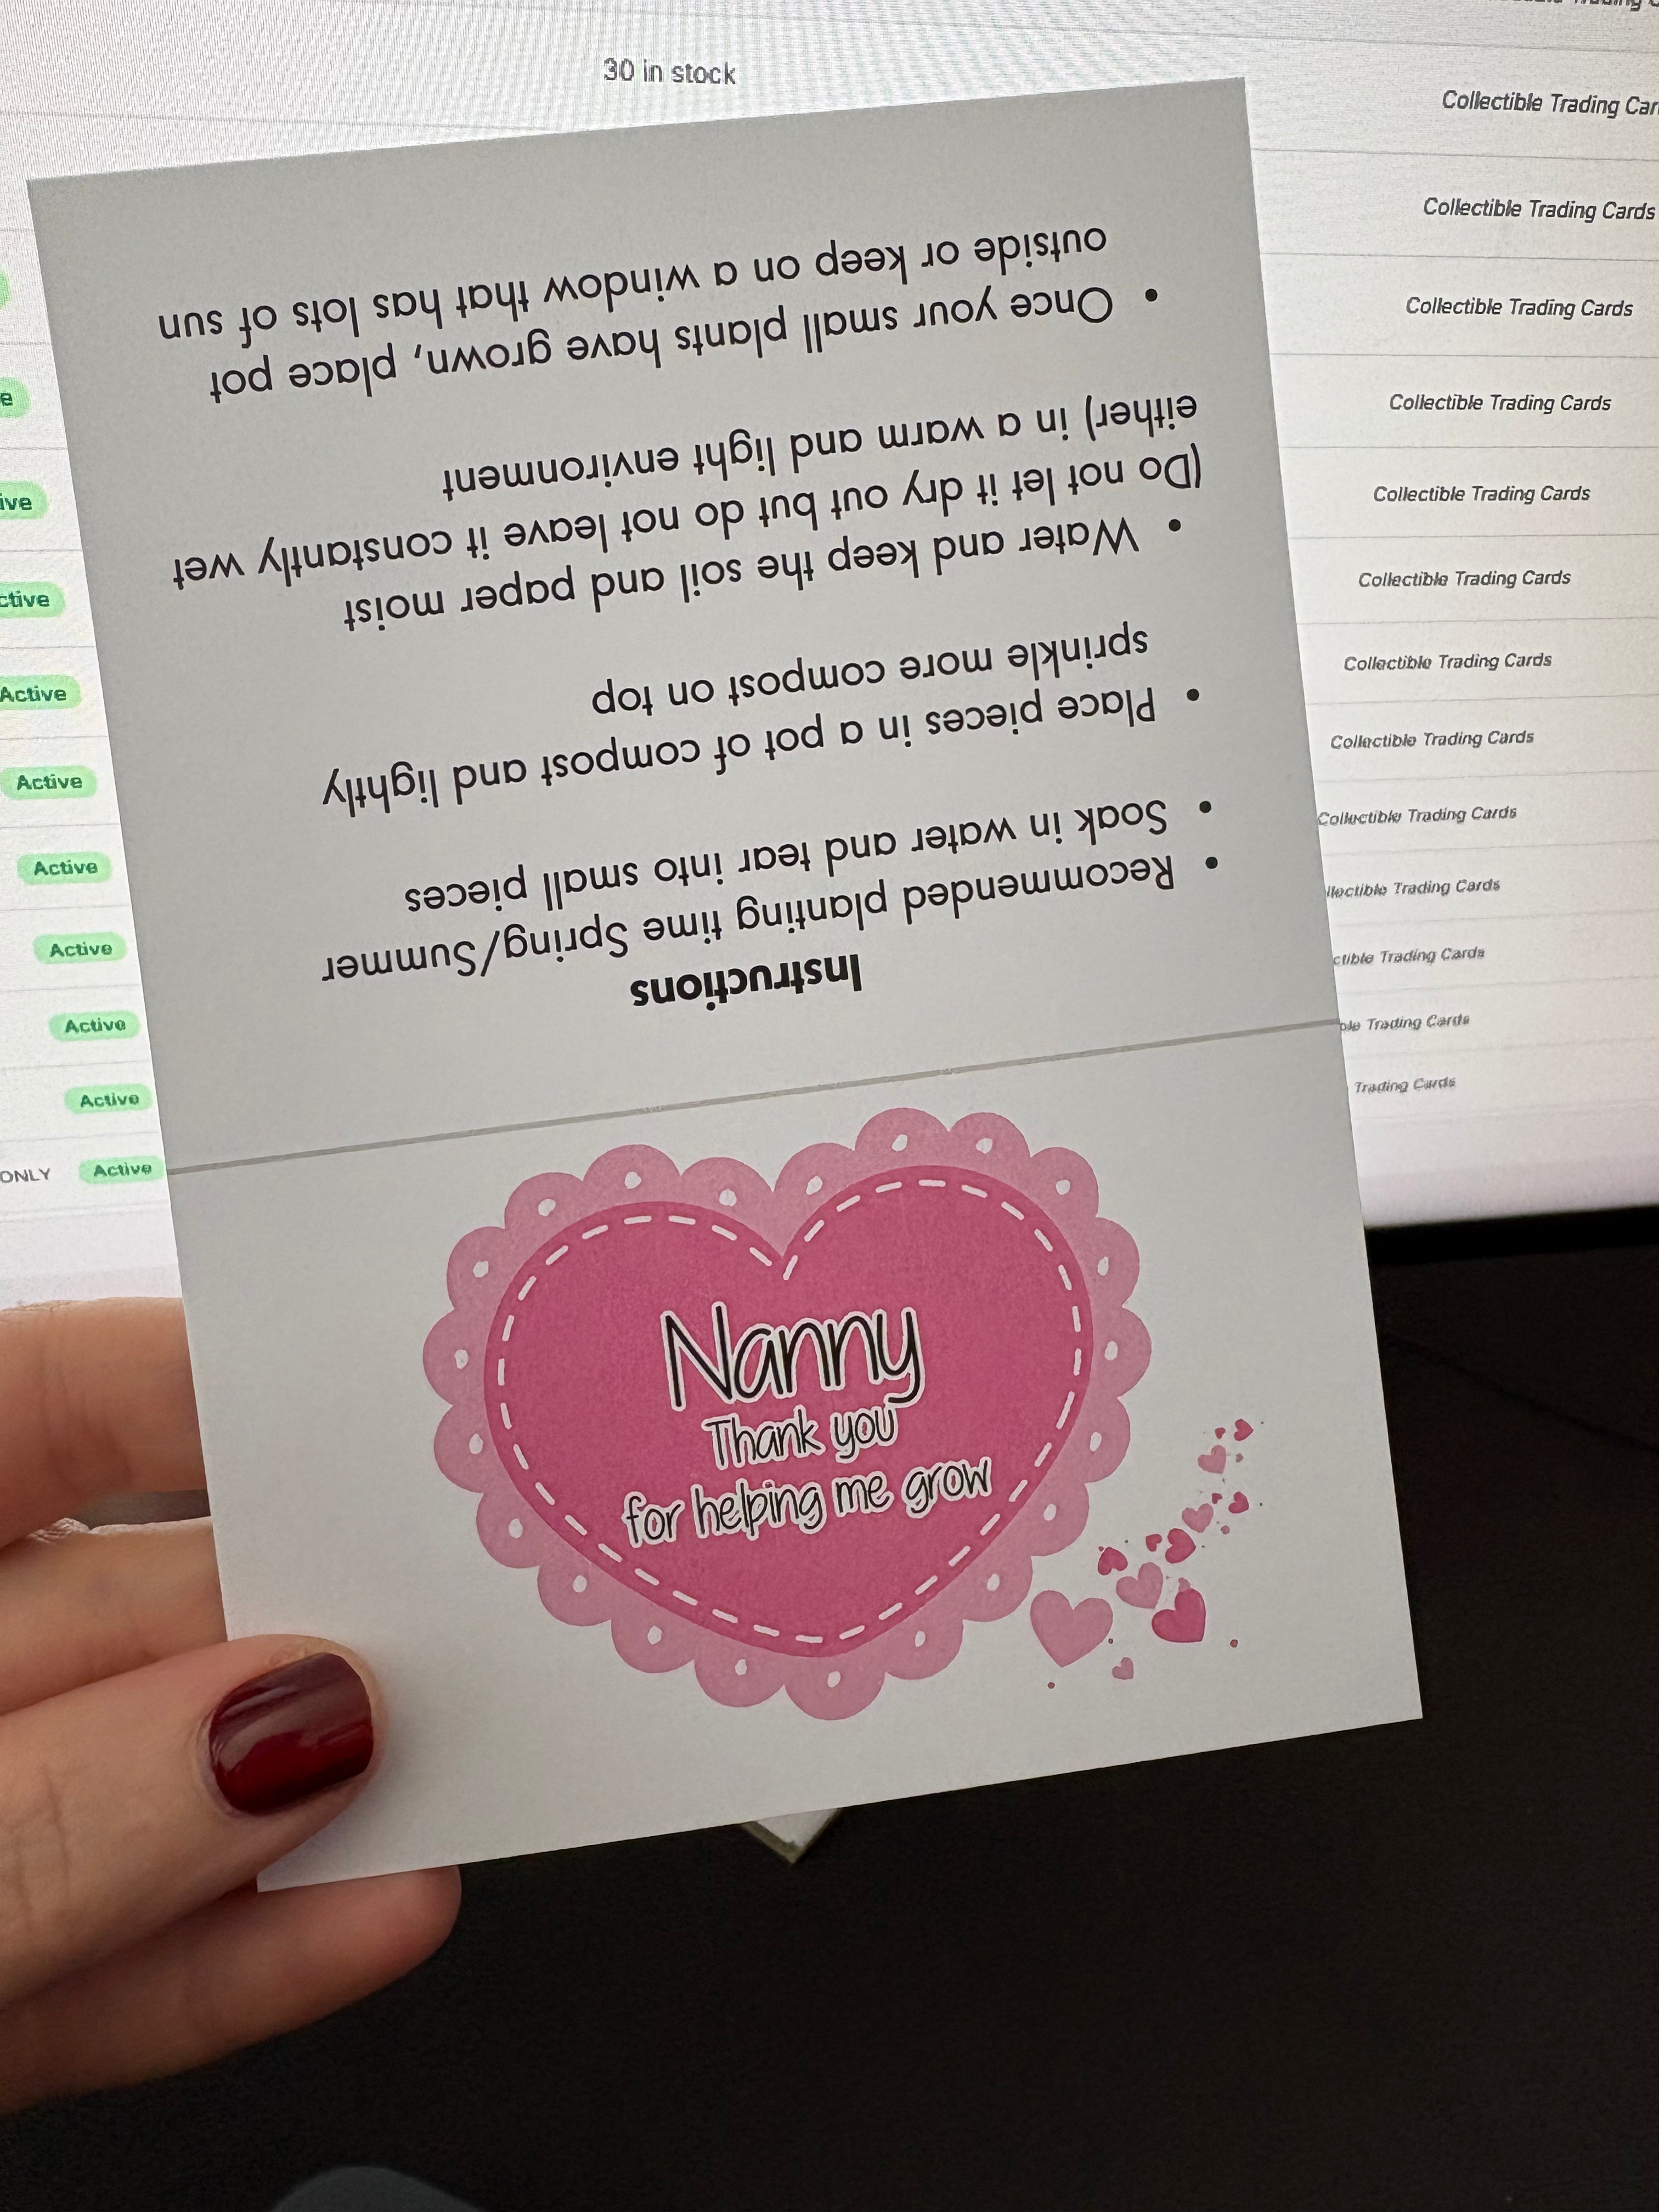 30 in stock
Collectible Trading Cards
Collectible Trading Cards
Collectible Trading Cards
Collectible Trading Cards
Collectible Trading Cards
Collectible Trading Cards
Collectible Trading Cards
Collectible Trading Cards
Trading Cards
Trading Cards
Trading Cards
Trading Cards
Active
Active
Active
Active
Active
Active
ONLY Active
Instructions
• Recommended planting time Spring/Summer
• Soak in water and tear into small pieces
• Place pieces in a pot of compost and lightly
sprinkle more compost on top
• Water and keep the soil and paper moist
(Do not let it dry out but do not leave it constantly wet
either) in a warm and light environment
• Once your small plants have grown, place pot
outside or keep on a window that has lots of sun
Nanny
Thank you
for helping me grow